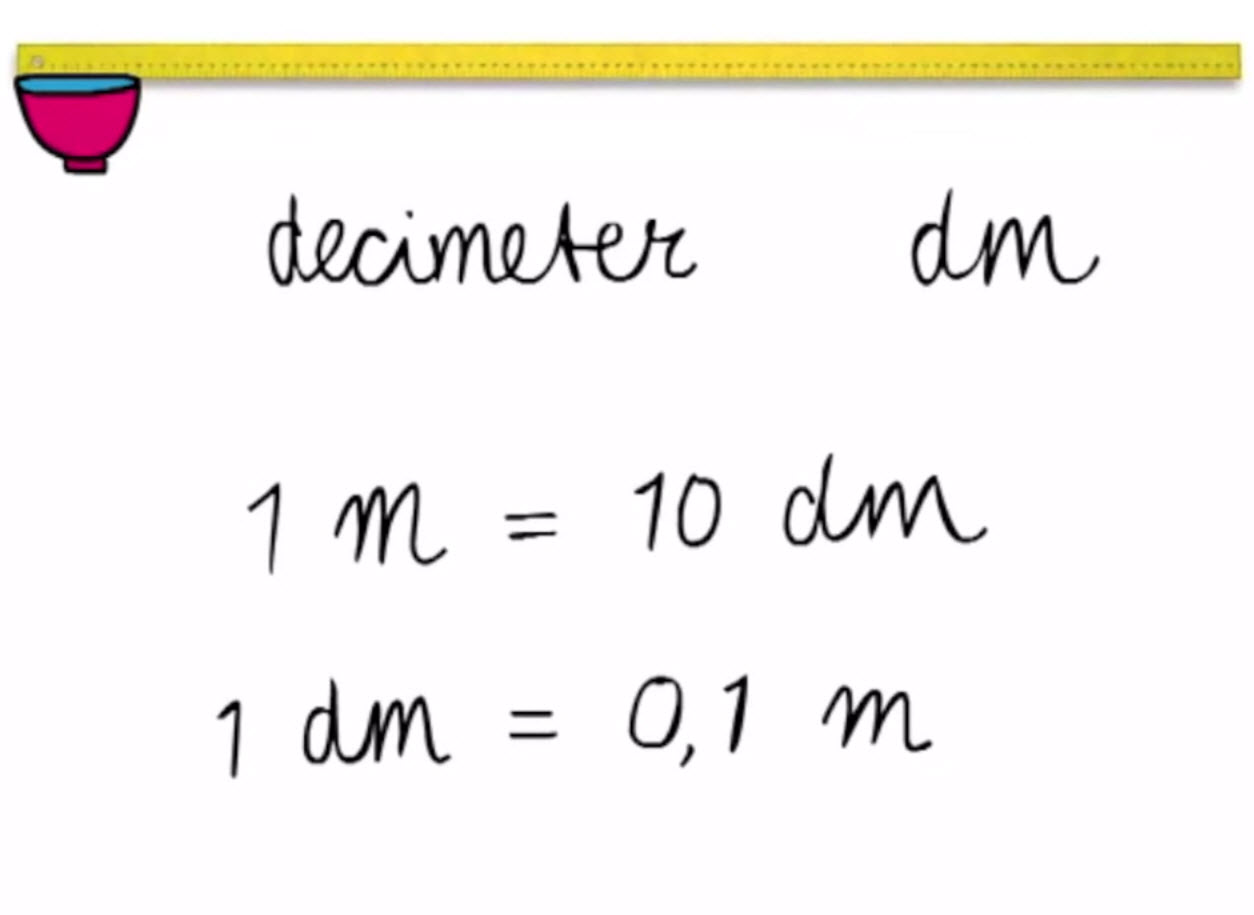 decimeter dm
1 m = 10 dm
1 dm = 0,1 m